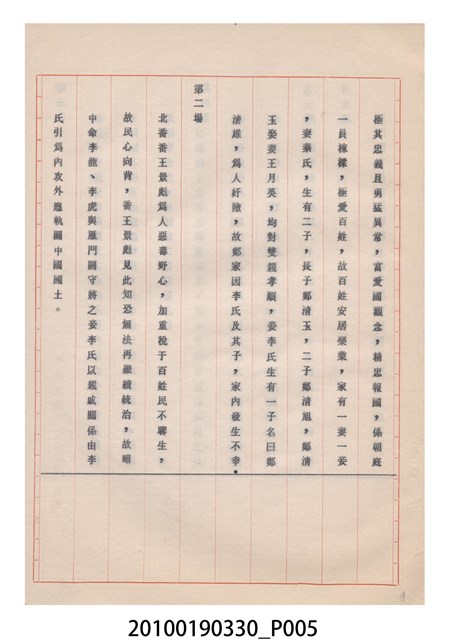 極其忠義且勇猛異常，富愛國觀念，精忠報國，係朝庭
一員棟樑，極愛百姓，故百姓安居樂業，家有一妻一妾
，妻秦氏，生有二子，長子鄭清玉，二子鄭清旭，鄭清
玉娶妻王月英，均對雙親孝順，妾李氏生有一子名曰鄭
清雄，為人奸險，故鄭家因李氏及其子，家內發生不幸。
第二場
北番番王景彪為人惡毒野心，加重稅于百姓民不聊生，
故民心向背，番王景彪見此知恐無法再繼續統治，故暗
中命李龍、李虎與雁門關守將之妾李氏以親戚關係由李
氏引為內攻外應執圖中國國土。
20100190330_P005